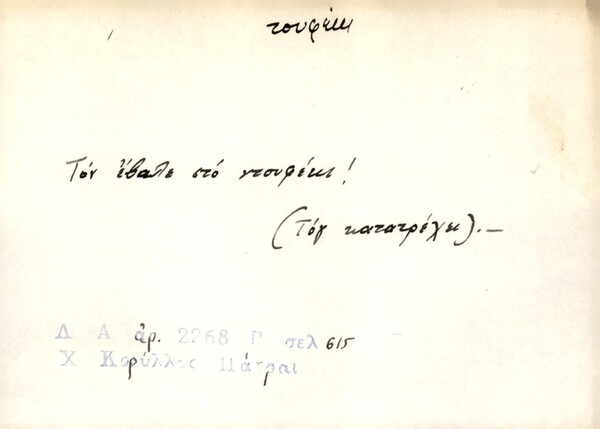 τουφέκι
Τόν ἔβαλε στό ντουφέκι!
(Τόν κατατρέχει).—
Δ Α ἀρ. 2268 Γ σελ 615
Χ Κορύλλος Πάτραι